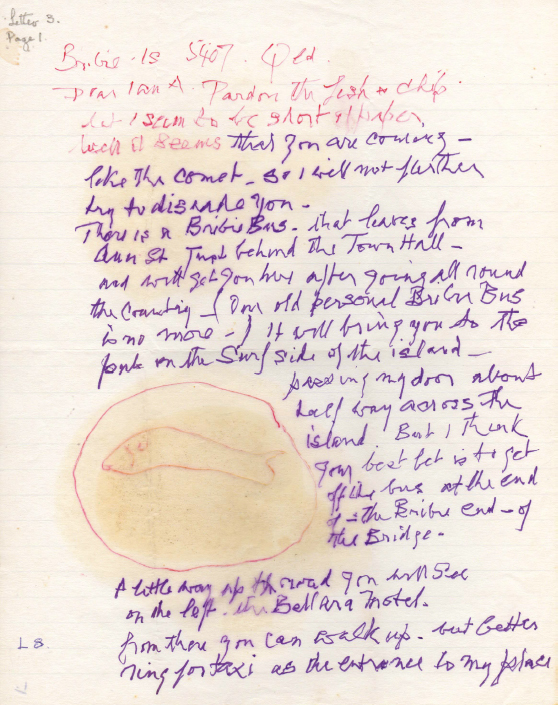 Letter 3.
Page 1.
Bribie Is 5407. Qld.
Dear Ian A. Pardon the fish & chip.
but I seem to be short of paper
Well it seems that you are coming –
like the comet – so I will not further
try to dissuade you –
There is a Bribie Bus – that leaves from
Ann St Just behind the Town Hall –
and will get you here after going all round
the country – (Our old personal Bribie Bus
is no more –) It will bring you to the
park on the Surf side of the island –
passing my door about
half way across the
island But I think
your best bet is to get
off the bus at the end
of – the Bribie end – of
the Bridge –
A little way up the road you will see
on the left – the Bellara Motel.
from there you can walk up – but better
L8.
ring for taxi as the entrance to my place